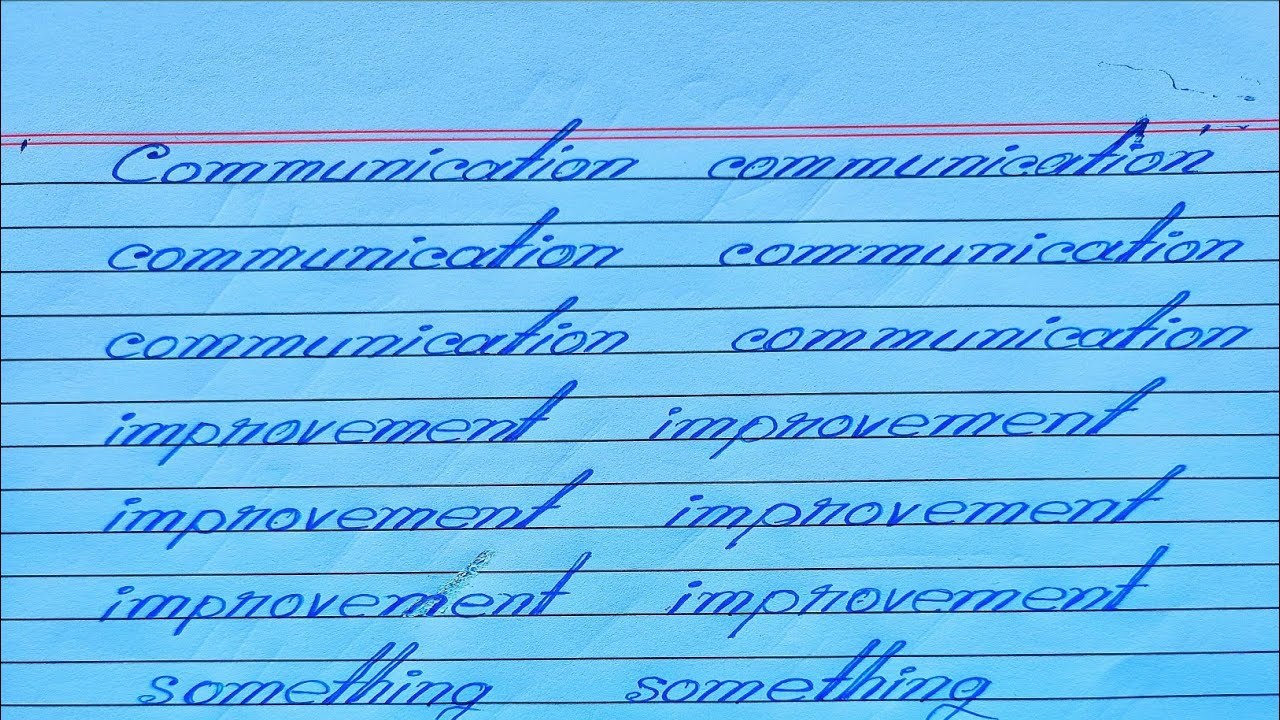 Communication communication
communication communication
communication communication
improvement improvement
improvement improvement
improvement improvement
something something